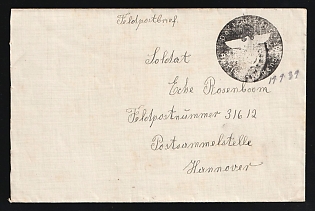 Feldpostbrief
Soldat
19.9.39
Ecke Rosenboom
Feldpostnummer 31612
Postsammelstelle
Hannover